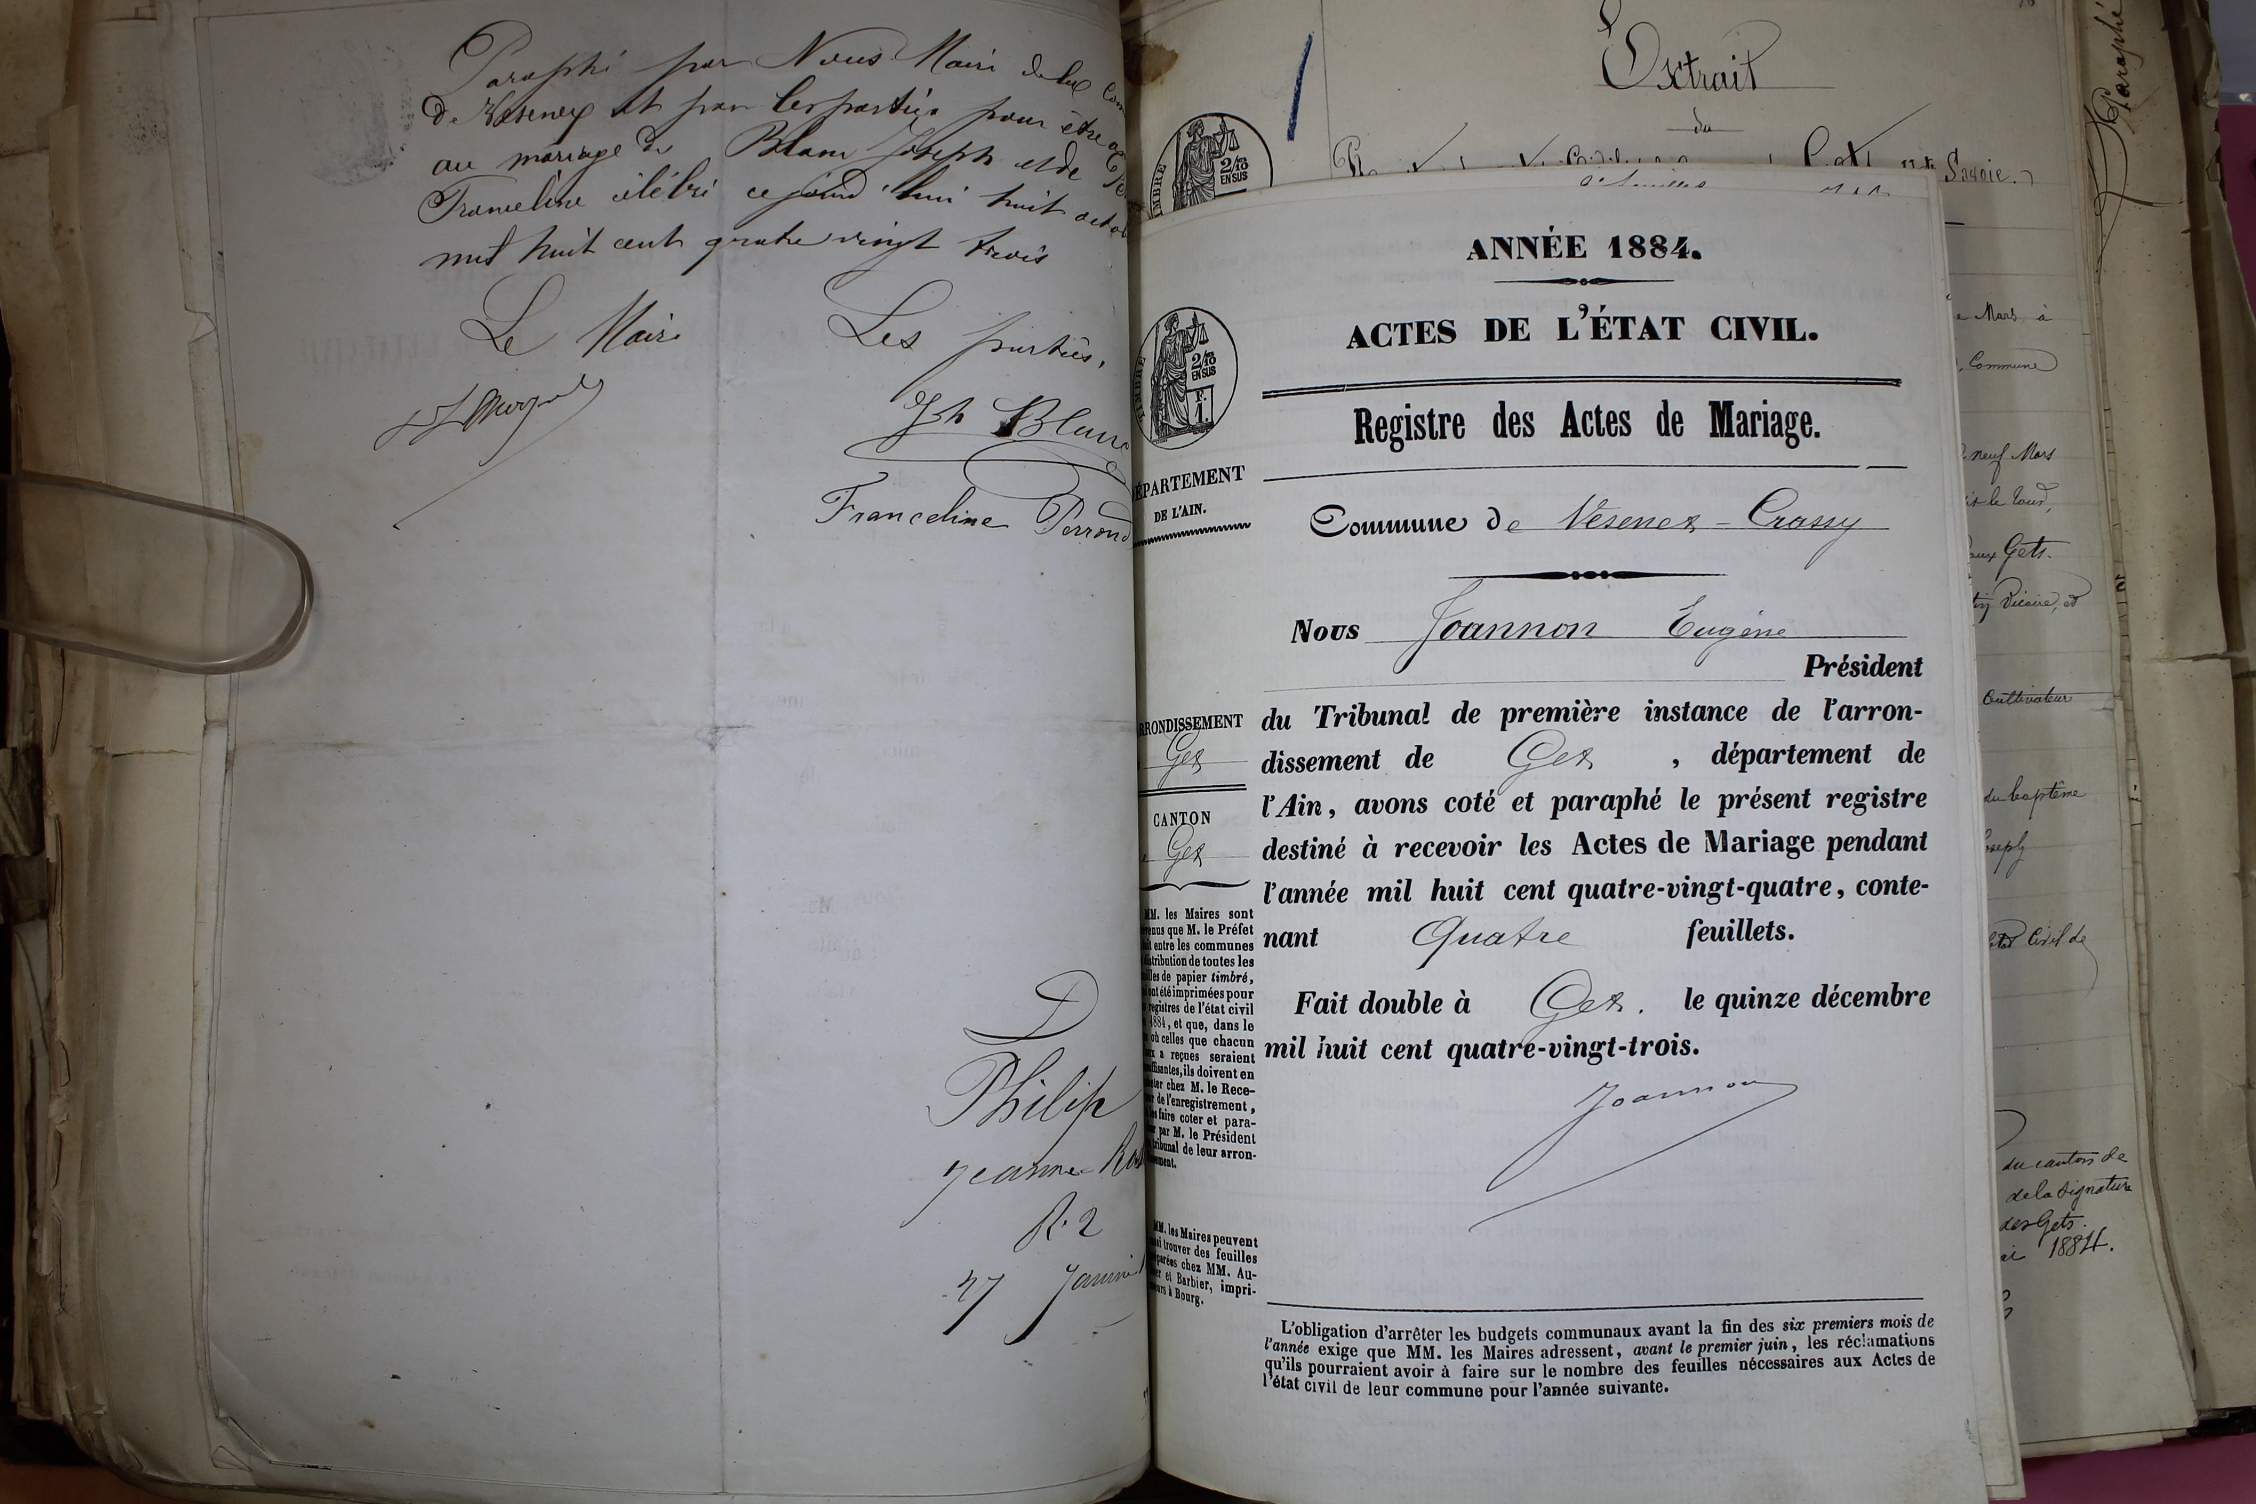 Paraphé par Nous Maire de la com
de Vesenex et par les parties pour être
au mariage de Blanc Joseph et de
Franceline célébré ce jourd'hui huit octob
mil huit cent quatre vingt trois
Le Maire
Les parties,
Jh Blanc
Franceline Perroud
D
Philip
Jeanne
R. 2
27 Janvier
Extrait
du
Savoie.
Paraphé
TIMBRE
2/10
EN SUS
ANNÉE 1884.
ACTES DE L'ÉTAT CIVIL.
TIMBRE
2/10
EN SUS
F.
1.
Registre des Actes de Mariage.
DÉPARTEMENT
DE L'AIN.
Commune de Vesenex-Crassy
Nous Joannon Eugène
Président
du Tribunal de première instance de l'arron-
dissement de Gex, département de
l'Ain, avons coté et paraphé le présent registre
destiné à recevoir les Actes de Mariage pendant
l'année mil huit cent quatre-vingt-quatre, conte-
nant Quatre feuillets.
Fait double à Gex. le quinze décembre
mil huit cent quatre-vingt-trois.
Joannon
ARRONDISSEMENT
Gex
CANTON
Gex
MM. les Maires sont
venus que M. le Préfet
ait entre les communes
distribution de toutes les
illes de papier timbré,
ont été imprimées pour
registres de l'état civil
1884, et que, dans le
où celles que chacun
eux a reçues seraient
uffisantes, ils doivent en
eter chez M. le Rece-
ur de l'enregistrement,
les faire coter et para-
er par M. le Président
tribunal de leur arron-
ssement.
MM. les Maires peuvent
ssi trouver des feuilles
éparées chez MM. Au-
er et Barbier, impri-
eurs à Bourg.
L'obligation d'arrêter les budgets communaux avant la fin des six premiers mois de
l'année exige que MM. les Maires adressent, avant le premier juin, les réclamations
qu'ils pourraient avoir à faire sur le nombre des feuilles nécessaires aux Actes de
l'état civil de leur commune pour l'année suivante.
Mars à
Commune
neuf Mars
aux Gets.
Vicaire, et
Cultivateur
du baptême
Joseph
Civil de
du canton de
de la signature
des Gets.
1884.